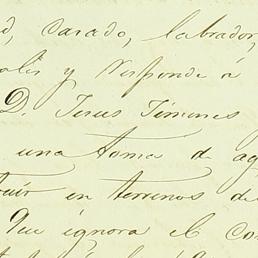 d, casado, labrador,
ales y responde á
D. Jesus Jimenes
una toma de ag
truir en terrenos de
Que ignora el con